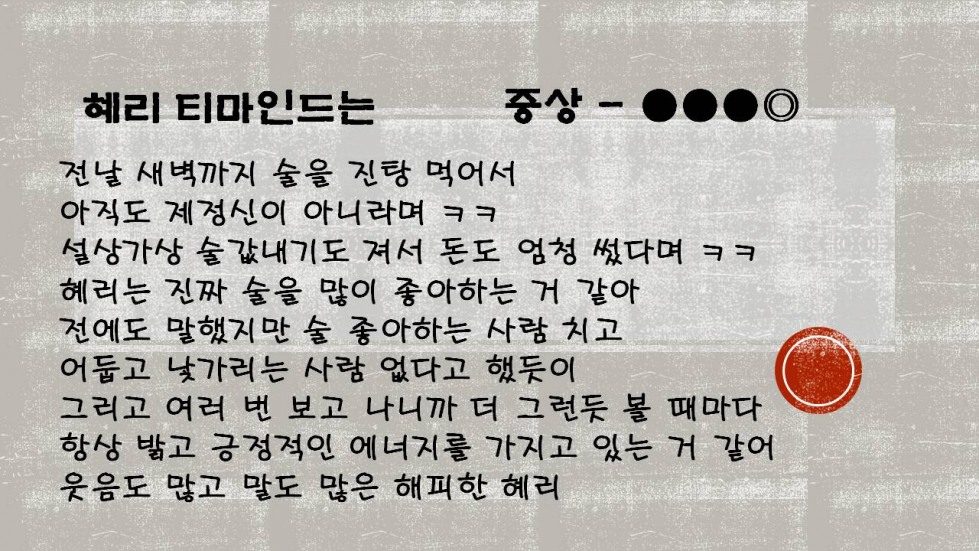 혜리 티마인드는 중상 - ●●●◎
전날 새벽까지 술을 진탕 먹어서
아직도 제정신이 아니라며 ㅋㅋ
설상가상 술값내기도 져서 돈도 엄청 썼다며 ㅋㅋ
혜리는 진짜 술을 많이 좋아하는 거 같아
전에도 말했지만 술 좋아하는 사람 치고
어둡고 낯가리는 사람 없다고 했듯이
그리고 여러 번 보고 나니까 더 그런듯 볼 때마다
항상 밝고 긍정적인 에너지를 가지고 있는 거 같어
웃음도 많고 말도 많은 해피한 혜리